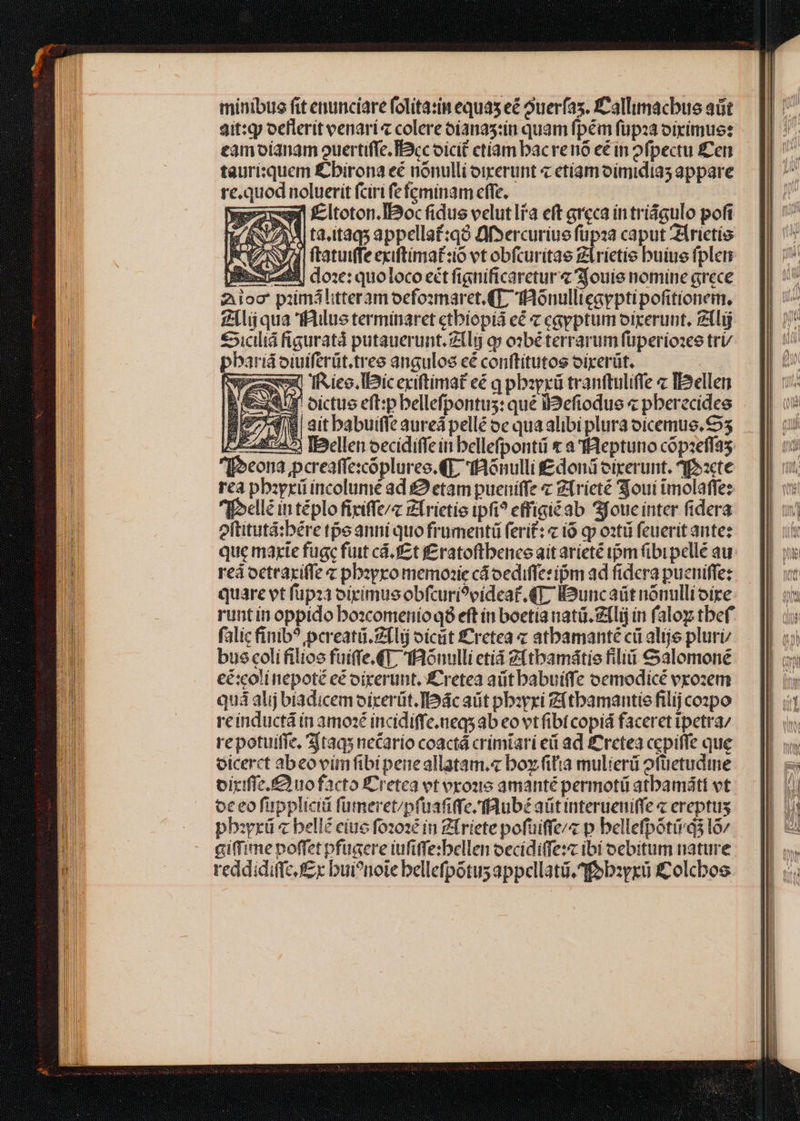 minibus sit enunciare solita:in equaȝ eē ꝯuersaȝ. Callimachus aūt
ait:ꝙ desierit venari ⁊ colere dianaȝ:in quam spēm supꝛa diximus:
eam dianam ꝯuertisse. Hec dicit̄ etiam hac re nō eē in ꝯspectu Cen
tauri:quem Chirona eē nōnulli dixerunt ⁊ etiam dimidiaȝ appare
re.quod noluerit sciri se feminam esse.
Eltoton. Hoc sidus velut lr̄a est greca in triāgulo posi
ta.itaqꝫ appellat̄:qd̄ Mercurius supꝛa caput Arietis
statuisse existimat̄:iō vt obscuritas Arietis huius splen
doꝛe: quo loco eēt significaretur ⁊ Jouis nomine grece
Διοσ pꝛimā litteram defoꝛmaret. ¶ Nōnulli egypti positionem.
Alij qua Nilus terminaret ethiopiā eē ⁊ egyptum dixerunt. Alij
Siciliā figuratā putauerunt. Alij ꝙ oꝛbē terrarum superioꝛes tri/
phariā diuiserūt.tres angulos eē constitutos dixerūt.
Ries. Hic existimat̄ eē q phꝛyxū transtulisse ⁊ Hellen
dictus est:p hellespontuȝ: quē Hesiodus ⁊ pherecides
ait habuisse aureā pellē de qua alibi plura dicemus. Sȝ
Hellen decidisse in hellespontū ⁊ a Neptuno cōpꝛessaȝ
Peona pcreasse:cōplures. ¶ Nōnulli Edonū dixerunt. Pꝛete
rea phꝛyxū incolumē ad Oetam puenisse ⁊ Arietē Joui īmolasse:
Pellē in tēplo fixisse/⁊ Arietis ipsiꝰ effigiē ab Joue inter sidera
ꝯstitutā:hēre tp̄s anni quo frumentū serit̄: ⁊ iō ꝙ oꝛtū seuerit ante:
que maxie fuge fuit cā. Et Eratosthenes ait arietē ip̄m sibi pellē au
reā detraxisse ⁊ phꝛyxo memoꝛie cā dedisse:ip̄m ad sidera puenisse:
quare vt supꝛa diximus obscuriꝰ videat̄. ¶ Hunc aūt nōnulli dixe
runt in oppido hoꝛcomenio qd̄ est in boetia natū. Alij in saloꝝ thes
salie finibꝰ pcreatū. Alij dicūt Cretea ⁊ athamantē cū alijs pluri/
bus eoli filios fuisse. ¶ Nōnulli etiā Athamātis filiū Salomonē
eē:eoli nepotē eē dixerunt. Cretea aūt habuisse demodicē vxoꝛem
quā alij biadicem dixerūt. Hāc aūt phꝛyxi Athamantis filij coꝛpo
re inductā in amoꝛē incidisse.neqꝫ ab eo vt sibi copiā faceret īpetra/
re potuisse. Itaqꝫ nec̄ario coactā crimīari eū ad Cretea cepisse que
diceret ab eo vim sibi pene allatam.⁊ hoꝝ silia mulierū ꝯsuetudine
dixisse. Quo facto Cretea vt vxoꝛis amantē permotū athamāti vt
de eo suppliciū sumeret/psuasisse. Nubē aūt interuenisse ⁊ ereptus
phꝛyxū ⁊ hellē eius soꝛoꝛē in Ariete posuisse/⁊ p hellespōtū qȝ lō/
gissime posset pfugere iussisse:hellen decidisse:⁊ ibi debitum nature
reddidisse. Ex huiꝰ noīe hellespōtuȝ appellatū. Phꝛyxū Colchos